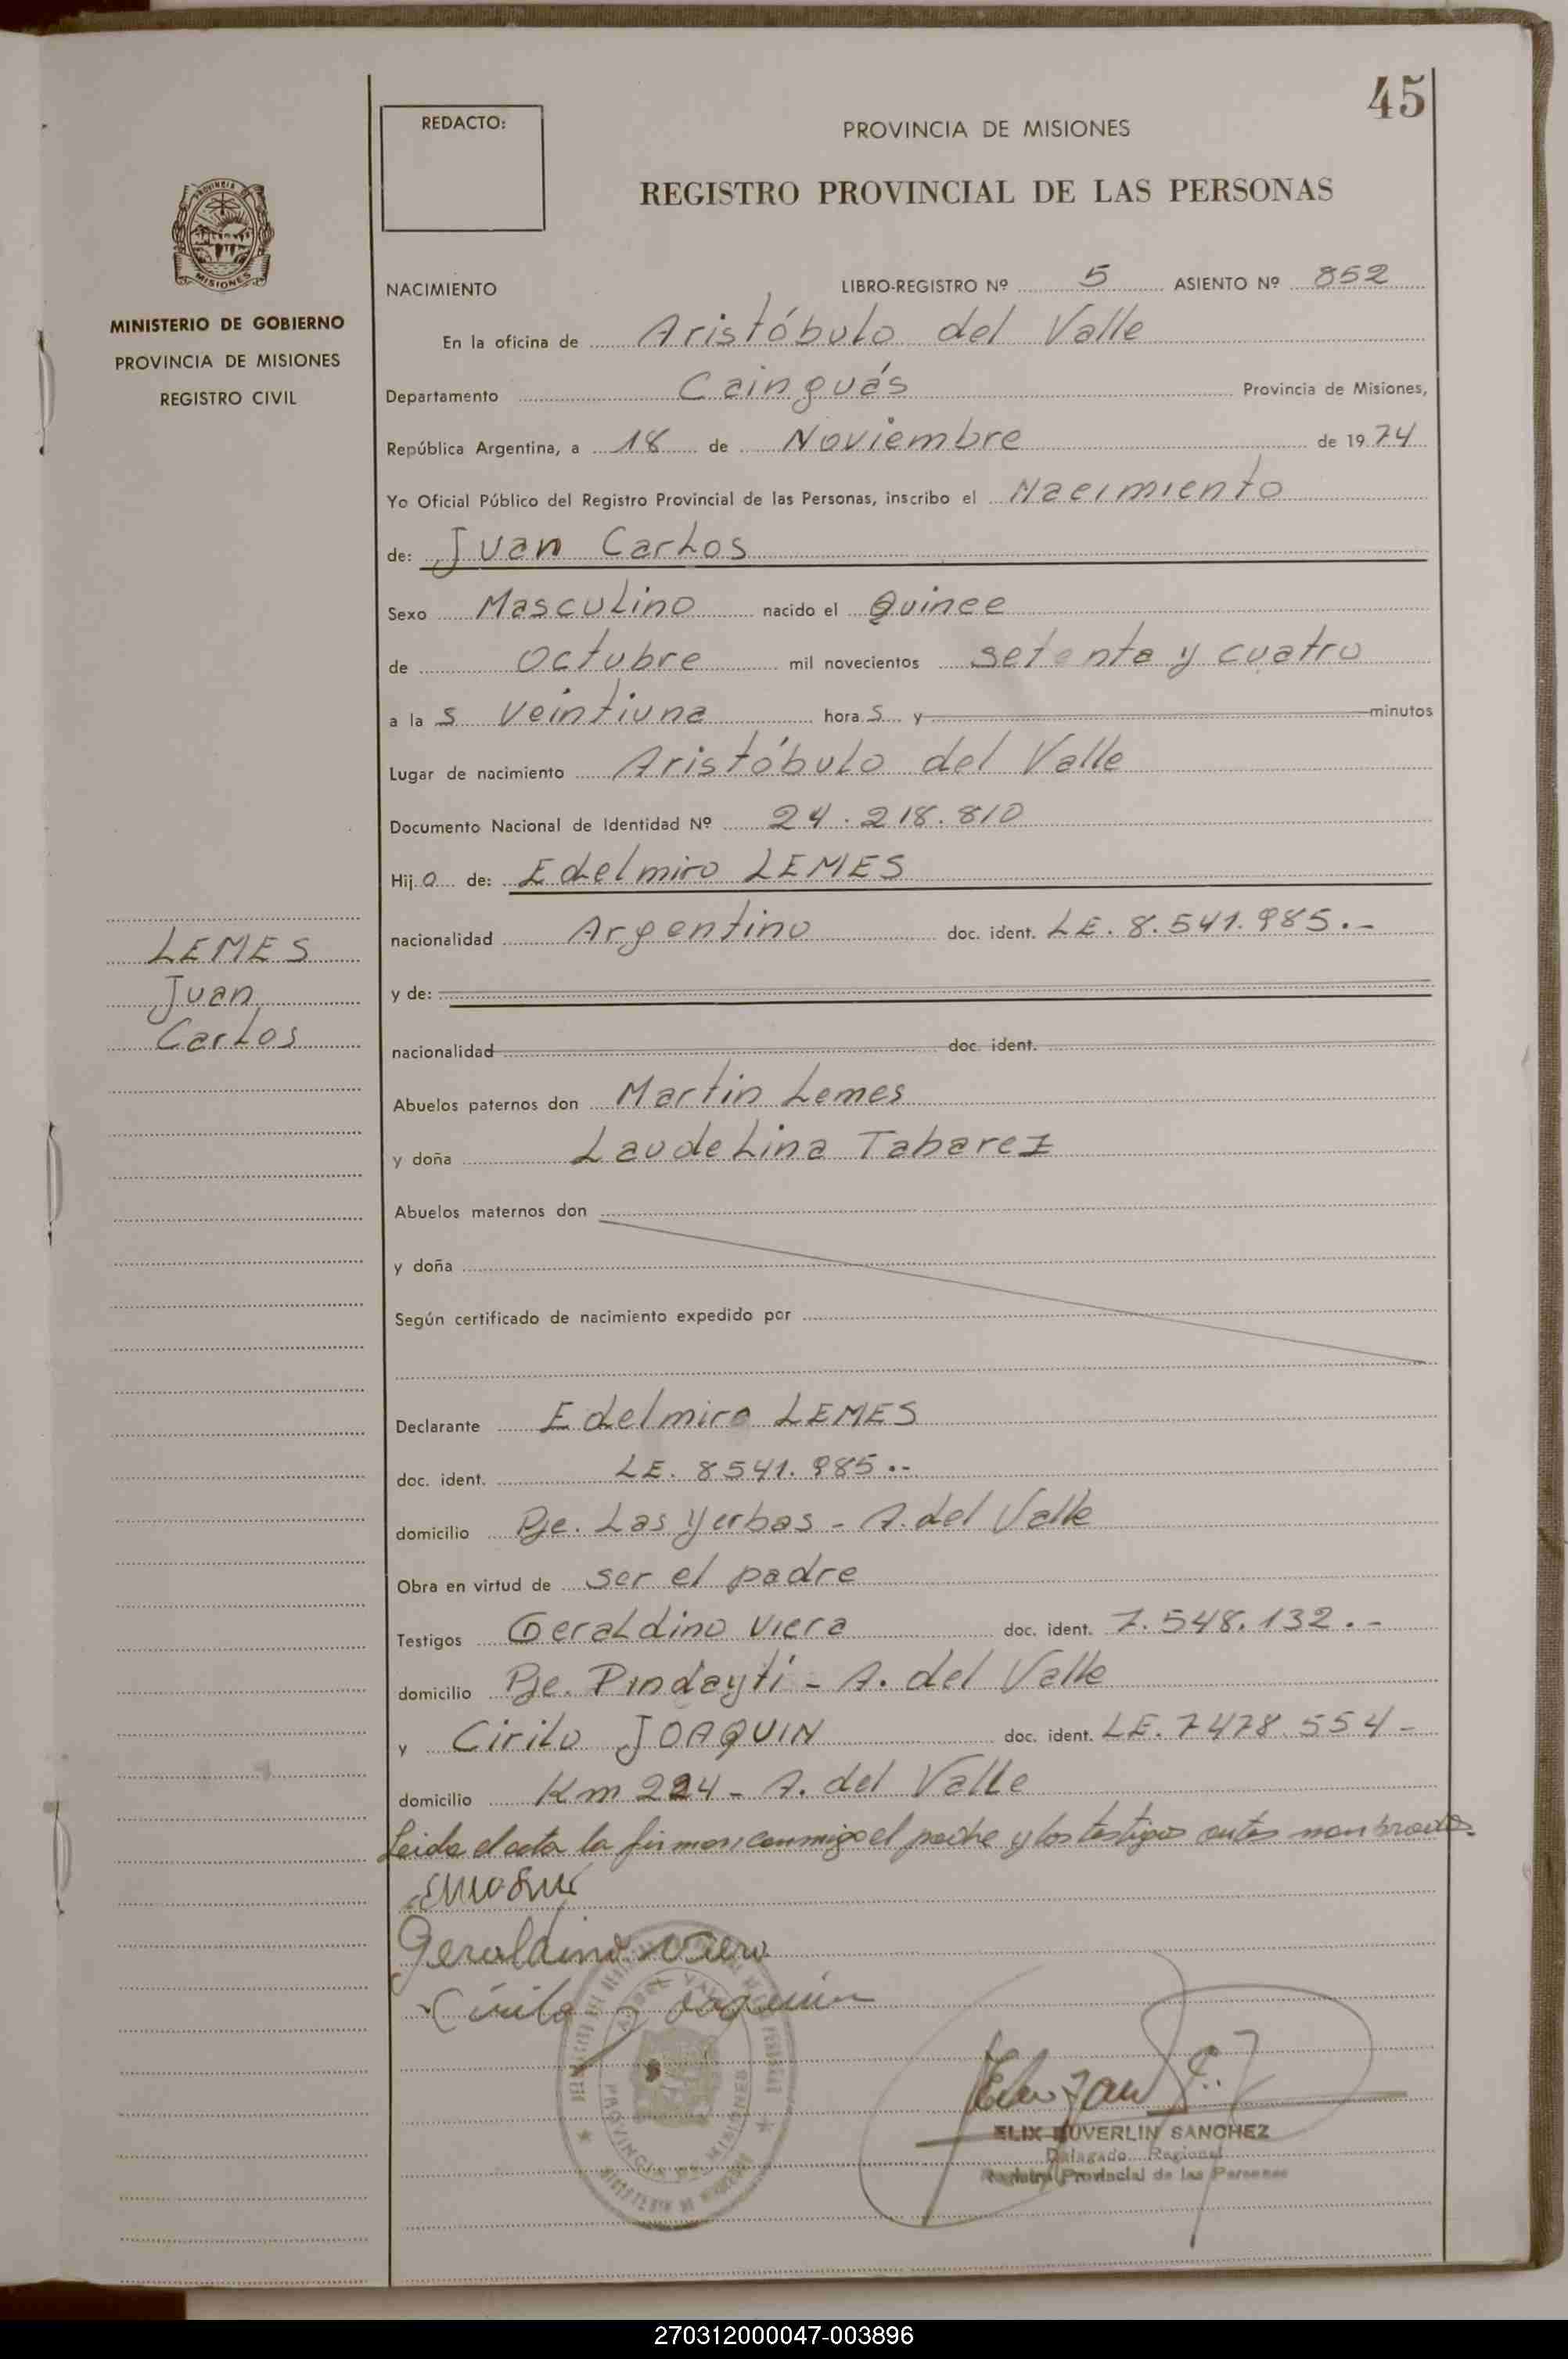 45
REDACTO:
PROVINCIA DE MISIONES
REGISTRO PROVINCIAL DE LAS PERSONAS
PROVINCIA DE
MISIONES
MINISTERIO DE GOBIERNO
PROVINCIA DE MISIONES
REGISTRO CIVIL
NACIMIENTO LIBRO-REGISTRO Nº 5 ASIENTO Nº 852
En la oficina de Aristóbulo del Valle
Departamento Cainguás Provincia de Misiones,
República Argentina, a 18 de Noviembre de 1974
Yo Oficial Público del Registro Provincial de las Personas, inscribo el Nacimiento
de: Juan Carlos
Sexo Masculino nacido el Quince
de Octubre mil novecientos setenta y cuatro
a la s veintiuna hora s y minutos
Lugar de nacimiento Aristóbulo del Valle
Documento Nacional de Identidad Nº 24.218.810
Hij o de: Edelmiro LEMES
nacionalidad Argentino doc. ident. LE. 8.541.985.-
y de:
nacionalidad doc. ident.
LEMES
Juan
Carlos
Abuelos paternos don Martin Lemes
y doña Laudelina Tabarez
Abuelos maternos don
y doña
Según certificado de nacimiento expedido por
Declarante Edelmiro LEMES
doc. ident. LE. 8541.985.-
domicilio Pje. Las Yerbas - A. del Valle
Obra en virtud de ser el padre
Testigos Geraldino Viera doc. ident. 7.548.132.-
domicilio Pje. Pindayti - A. del Valle
y Cirilo JOAQUIN doc. ident. LE. 7478.554-
domicilio Km 224 - A. del Valle
Leida el acta la firman conmigo el padre y los testigos antes nombrados.
Geraldino Viera
Cirilo Joaquin
PROVINCIA DE MISIONES
ELIX EUVERLIN SANCHEZ
Delegado Regional
Registro Provincial de las Personas
270312000047-003896